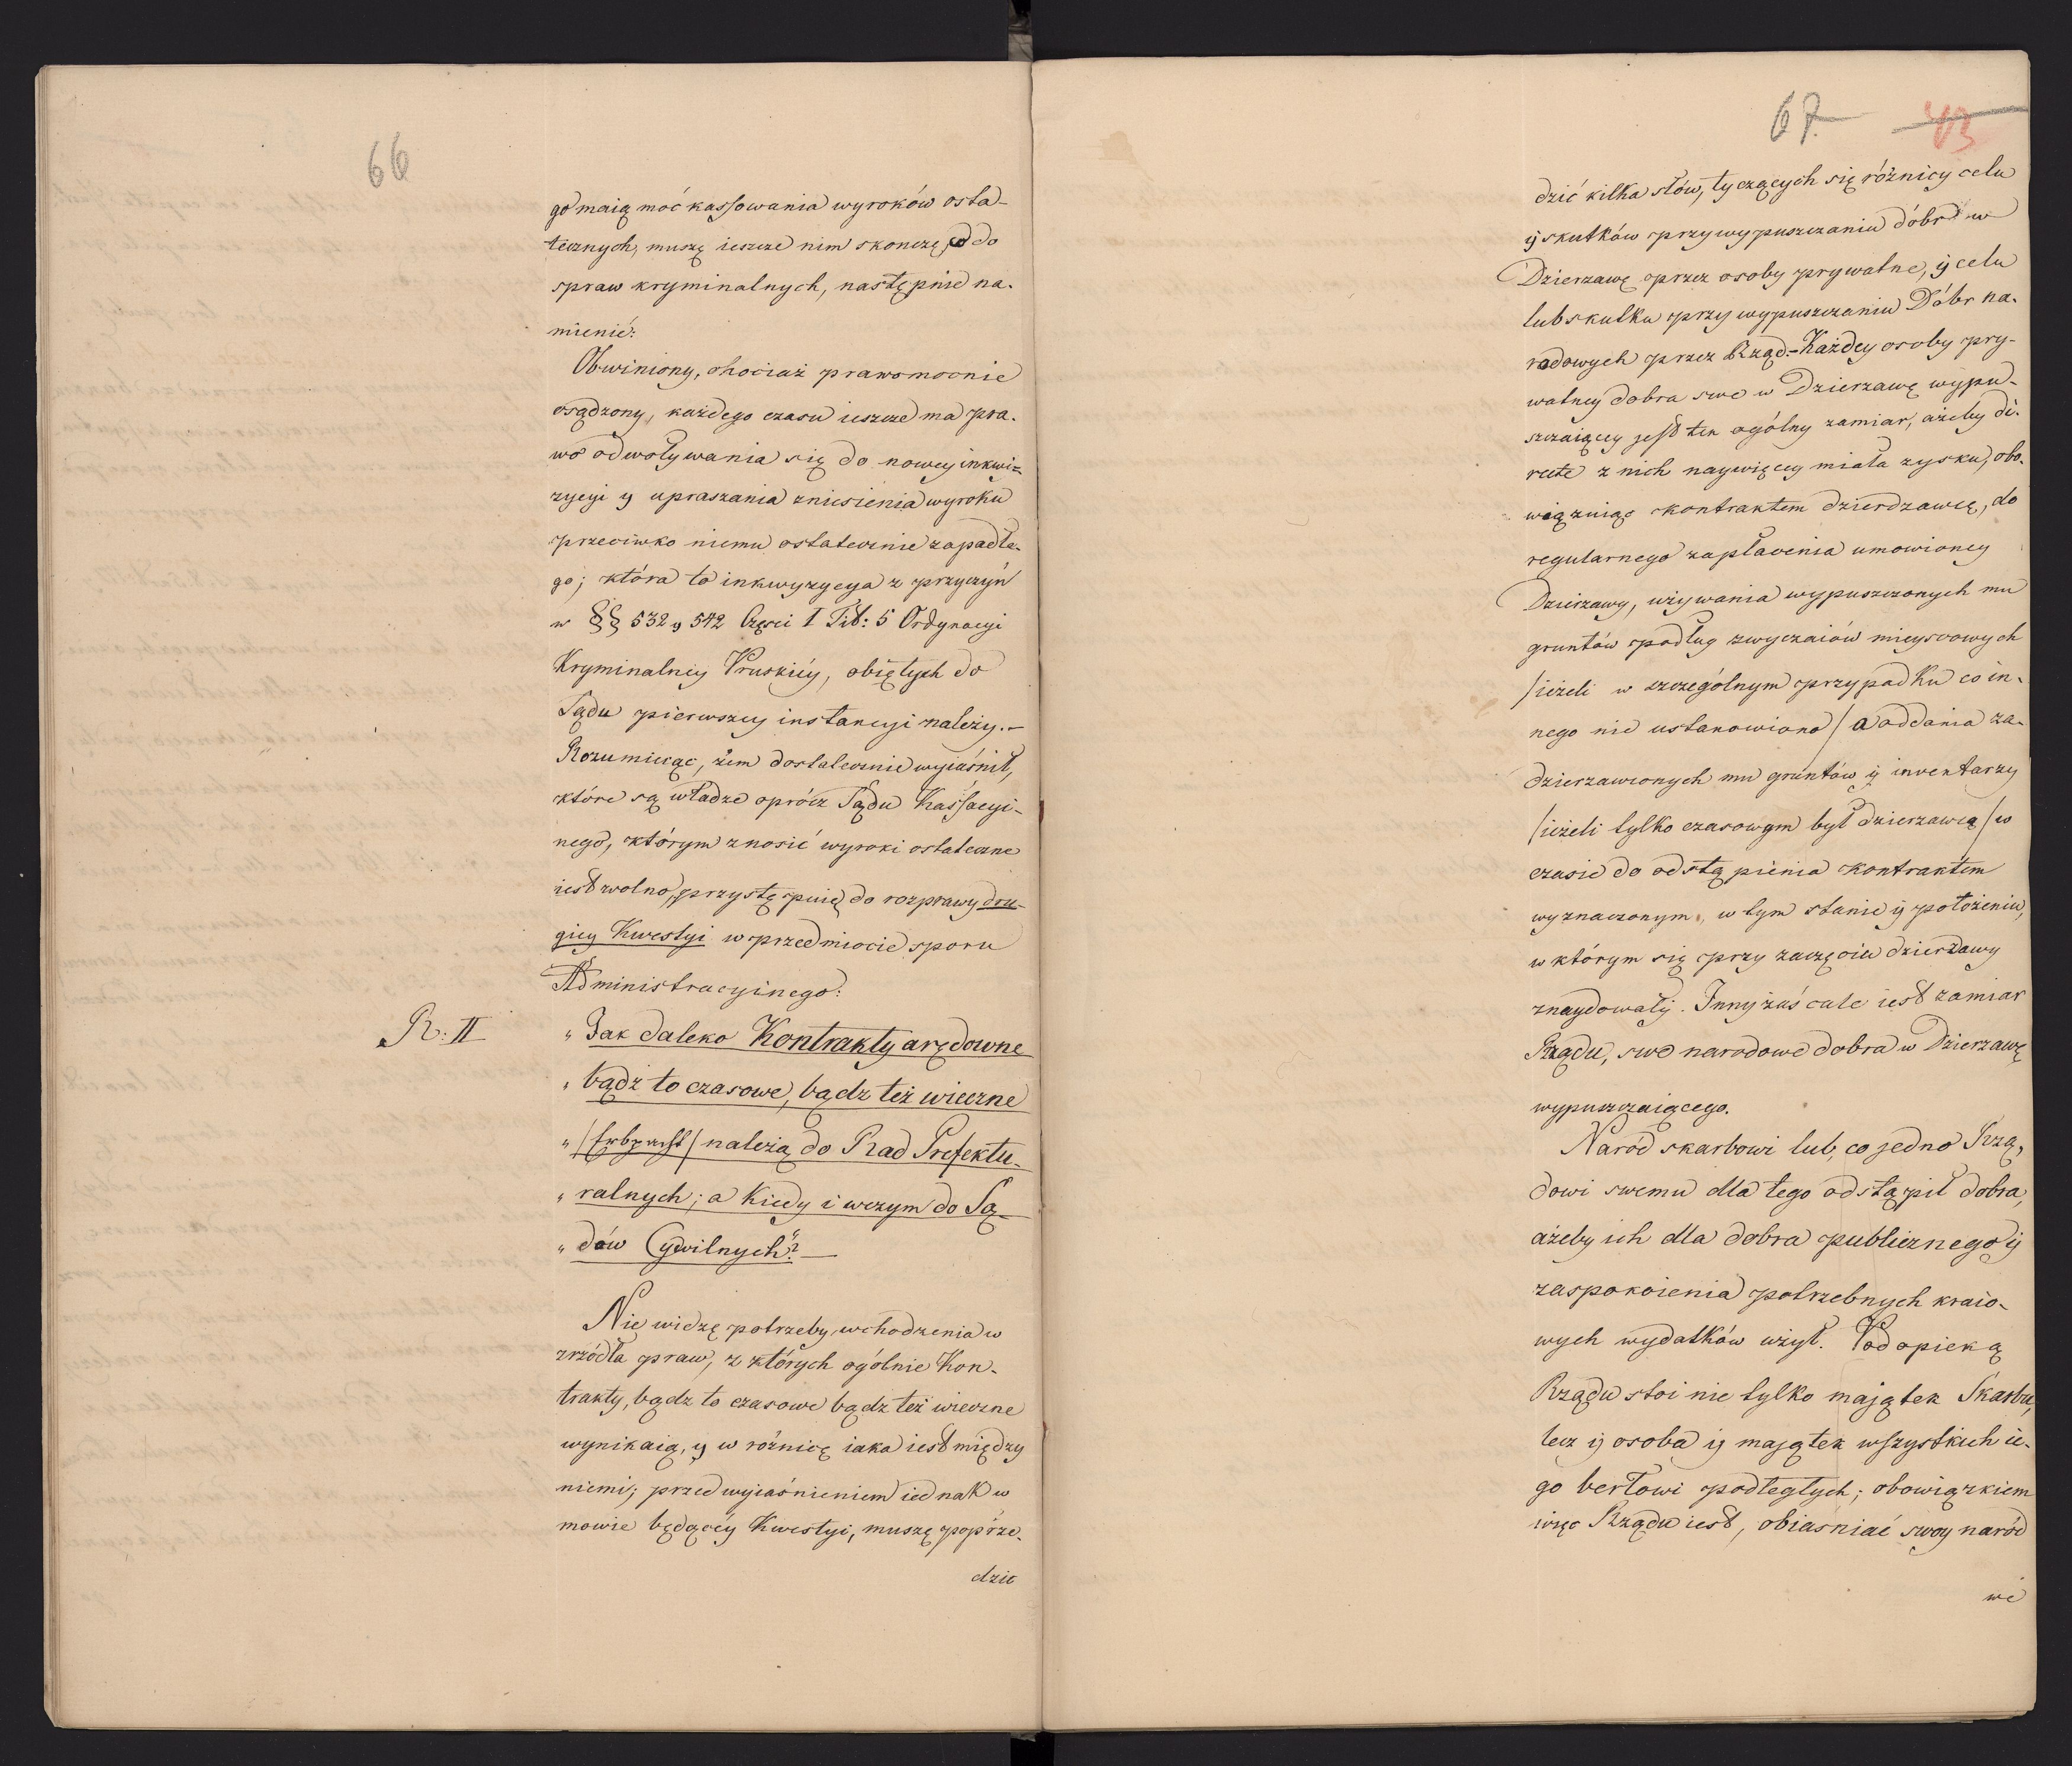 66
go maią moć kassowania wyroków osta-
tecznych, muszę ieszcze nim skonczę, co do
spraw kryminalnych, następnie na-
mienić:
Obwiniony, chociaż prawomocnie
osądzony, każdego czasu ieszcze ma pra-
wo odwoływania się do nowey inkwi-
zycyi y upraszania zniesienia wyroku
przeciwko niemu ostatecznie zapadłe-
go; która to inkwyzycya z przyczyń
w §§ 532 y 542 Częsci I Tit: 5 Ordynacyi
Kryminalney Pruskiéy, obiętych do
Sądu pierwszey instancyi należy.-
Rozumieiąc, żem dostatecznie wyiaśnił,
które są władze oprócz Sądu Kassacyi-
nego, którym znosić wyroki ostateczne
iest wolno, przystępuię do rozprawy dru-
giey Kwestyi w przedmiocie sporu
Administracyinego:
R: II
„ Jak daleko Kontrakty arędowne
„ bądź to czasowe, bądz też wieczne
„ /Erbpacht/ należą do Rad Prefektu-
„ ralnych; a Kiedy i wczym do Są-
„ dów Cywilnych"?
Nie widzę potrzeby wchodzenia w
zrzódła praw, z których ogólnie Kon-
trakty, bądz to czasowe bądz też wieczne
wynikaią, y w róźnicę iaka iest między
niemi; przed wyiaśnieniem iednak w
mowie będącéy Kwestyi, muszę poprze-
dzić
67. 43
dzić kilka słów, tyczących się różnicy celu
ÿ skutków przy wypuszczaniu dóbr w
Dzierzawę przez osoby prywatne, ÿ celu
lub skutku przy wypuszczaniu Dóbr na-
rodowych przez Rząd.- Każdey osoby pry-
watney dobra swe w Dzierzawę wypu-
szczaiącey jest ten ogólny zamiar, ażeby di-
recte z nich naywięcey miała zysku, obo-
wiązuiąc kontraktem dzierdzawcę, do
regularnego zapłacenia umowioney
Dzierzawy, używania wypuszczonych mu
gruntów podług zwyczaiów mieyscowych
/ieżeli w szczególnym przypadku co in-
nego nie ustanowiono/ a oddania za-
dzierzawionych mu gruntów ÿ inwentarzy
/ieżeli tylko czasowym był dzierzawcą/ w
czasie do odstąpienia kontraktem
wyznaczonym, w tym stanie ÿ położeniu,
w którym się przy zaczęciu dzierzawy
znaydowały. Inny zaś cale iest zamiar
Rządu, swe narodowe dobra w Dzierzawę
wypuszczaiącego.
Naród skarbowi lub, co jedno Rzą-
dowi swemu dla tego odstąpił dobra,
ażeby ich dla dobra publicznego ÿ
zaspokoienia potrzebnych kraio-
wych wydatków użył. Pod opieką
Rządu stoi nie tylko majątek Skarbu,
lecz ÿ osoba ÿ majątek wszystkich ie-
go berłowi podległych; obowiązkiem
więc Rządu iest, obiasniać swoy naród
we